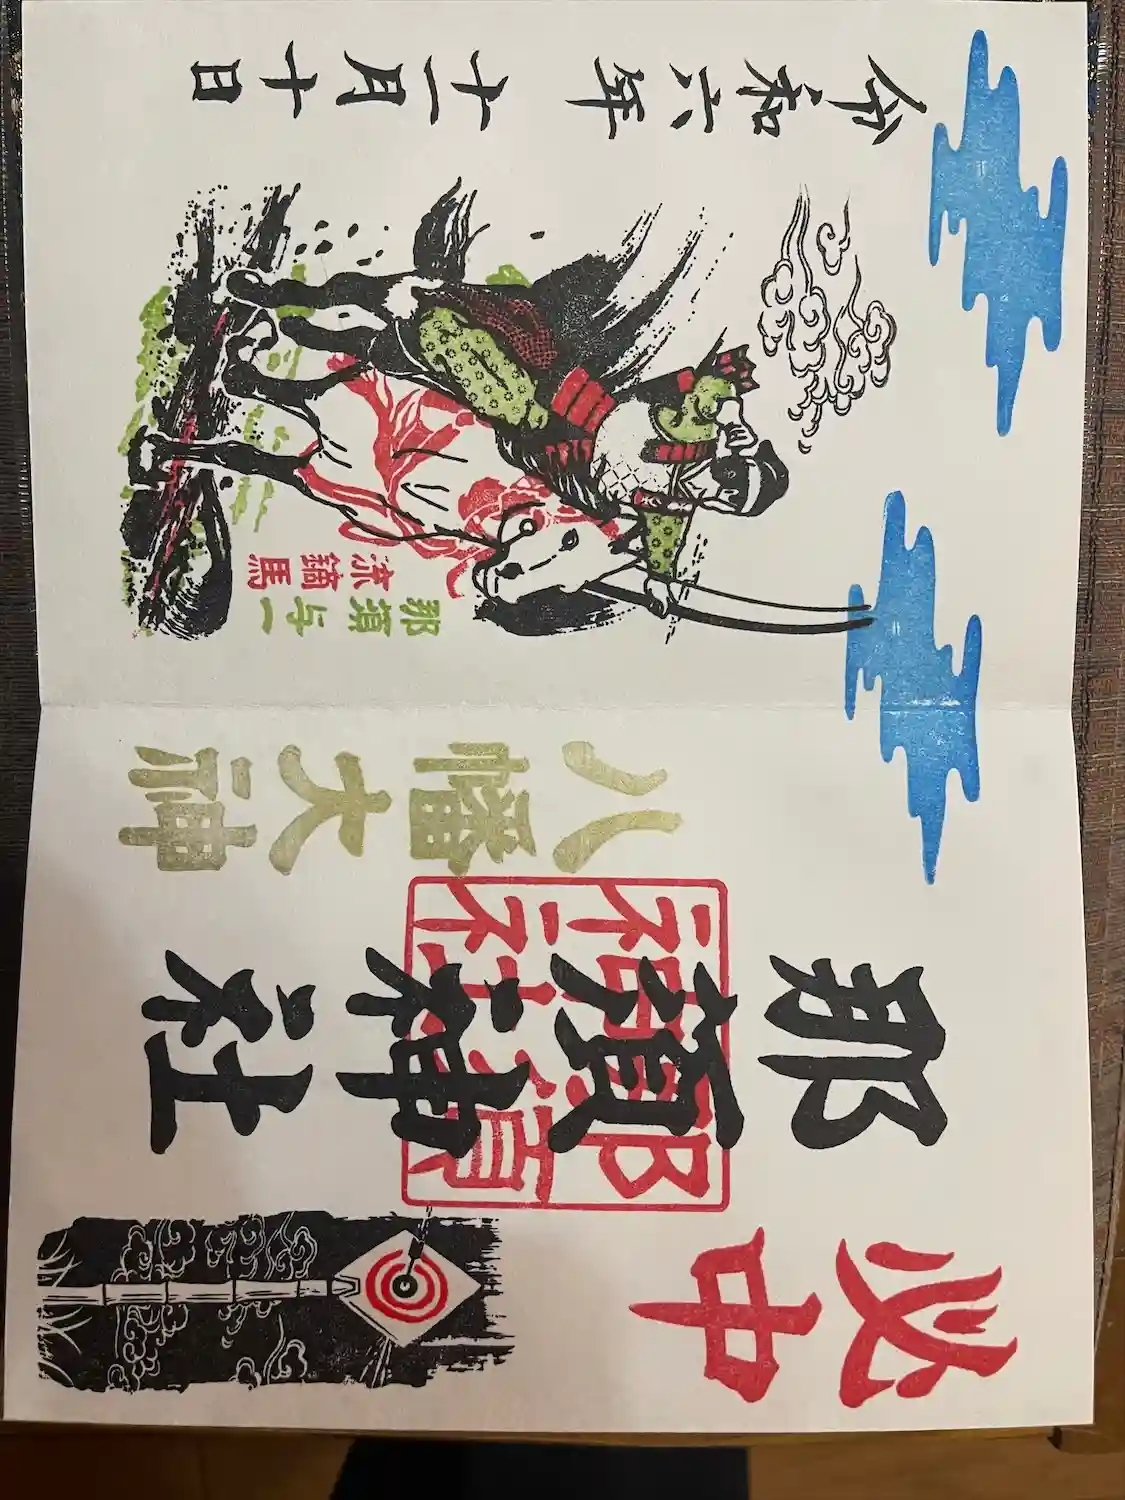 必中
那須神社
那須神社
八幡大神
那須与一
流鏑馬
令和六年十一月十日